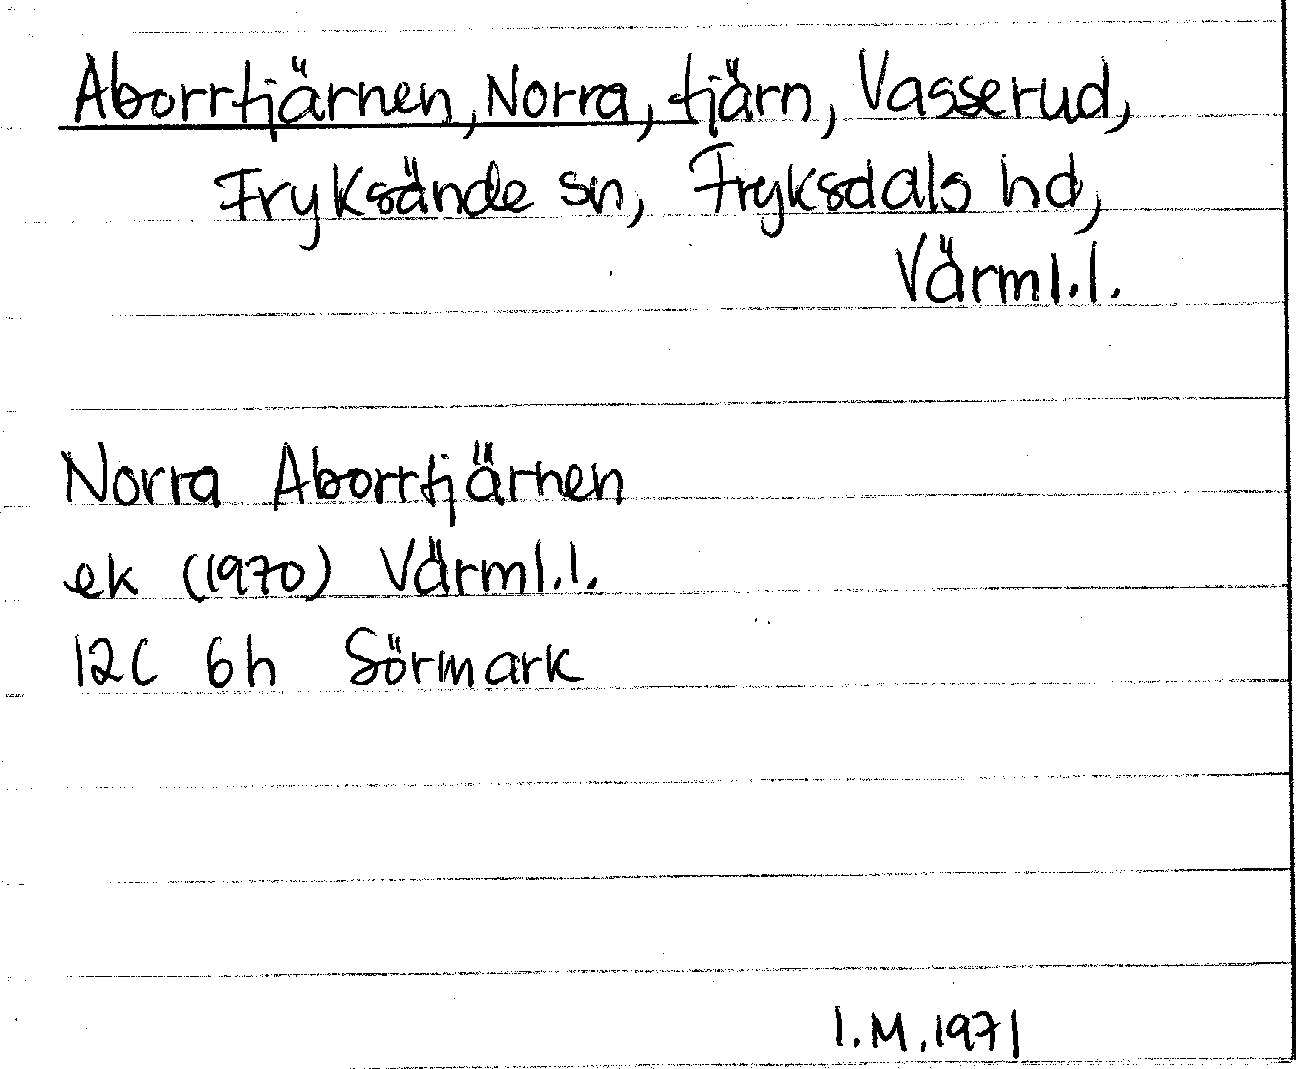 Aborrtjärnen, Norra, tjärn, Vasserud,
Fryksände sn, Fryksdals hd,
Värml.l.
Norra Aborrtjärnen
ek (1970) Värml.l.
12C 6h Sörmark
I.M.1971